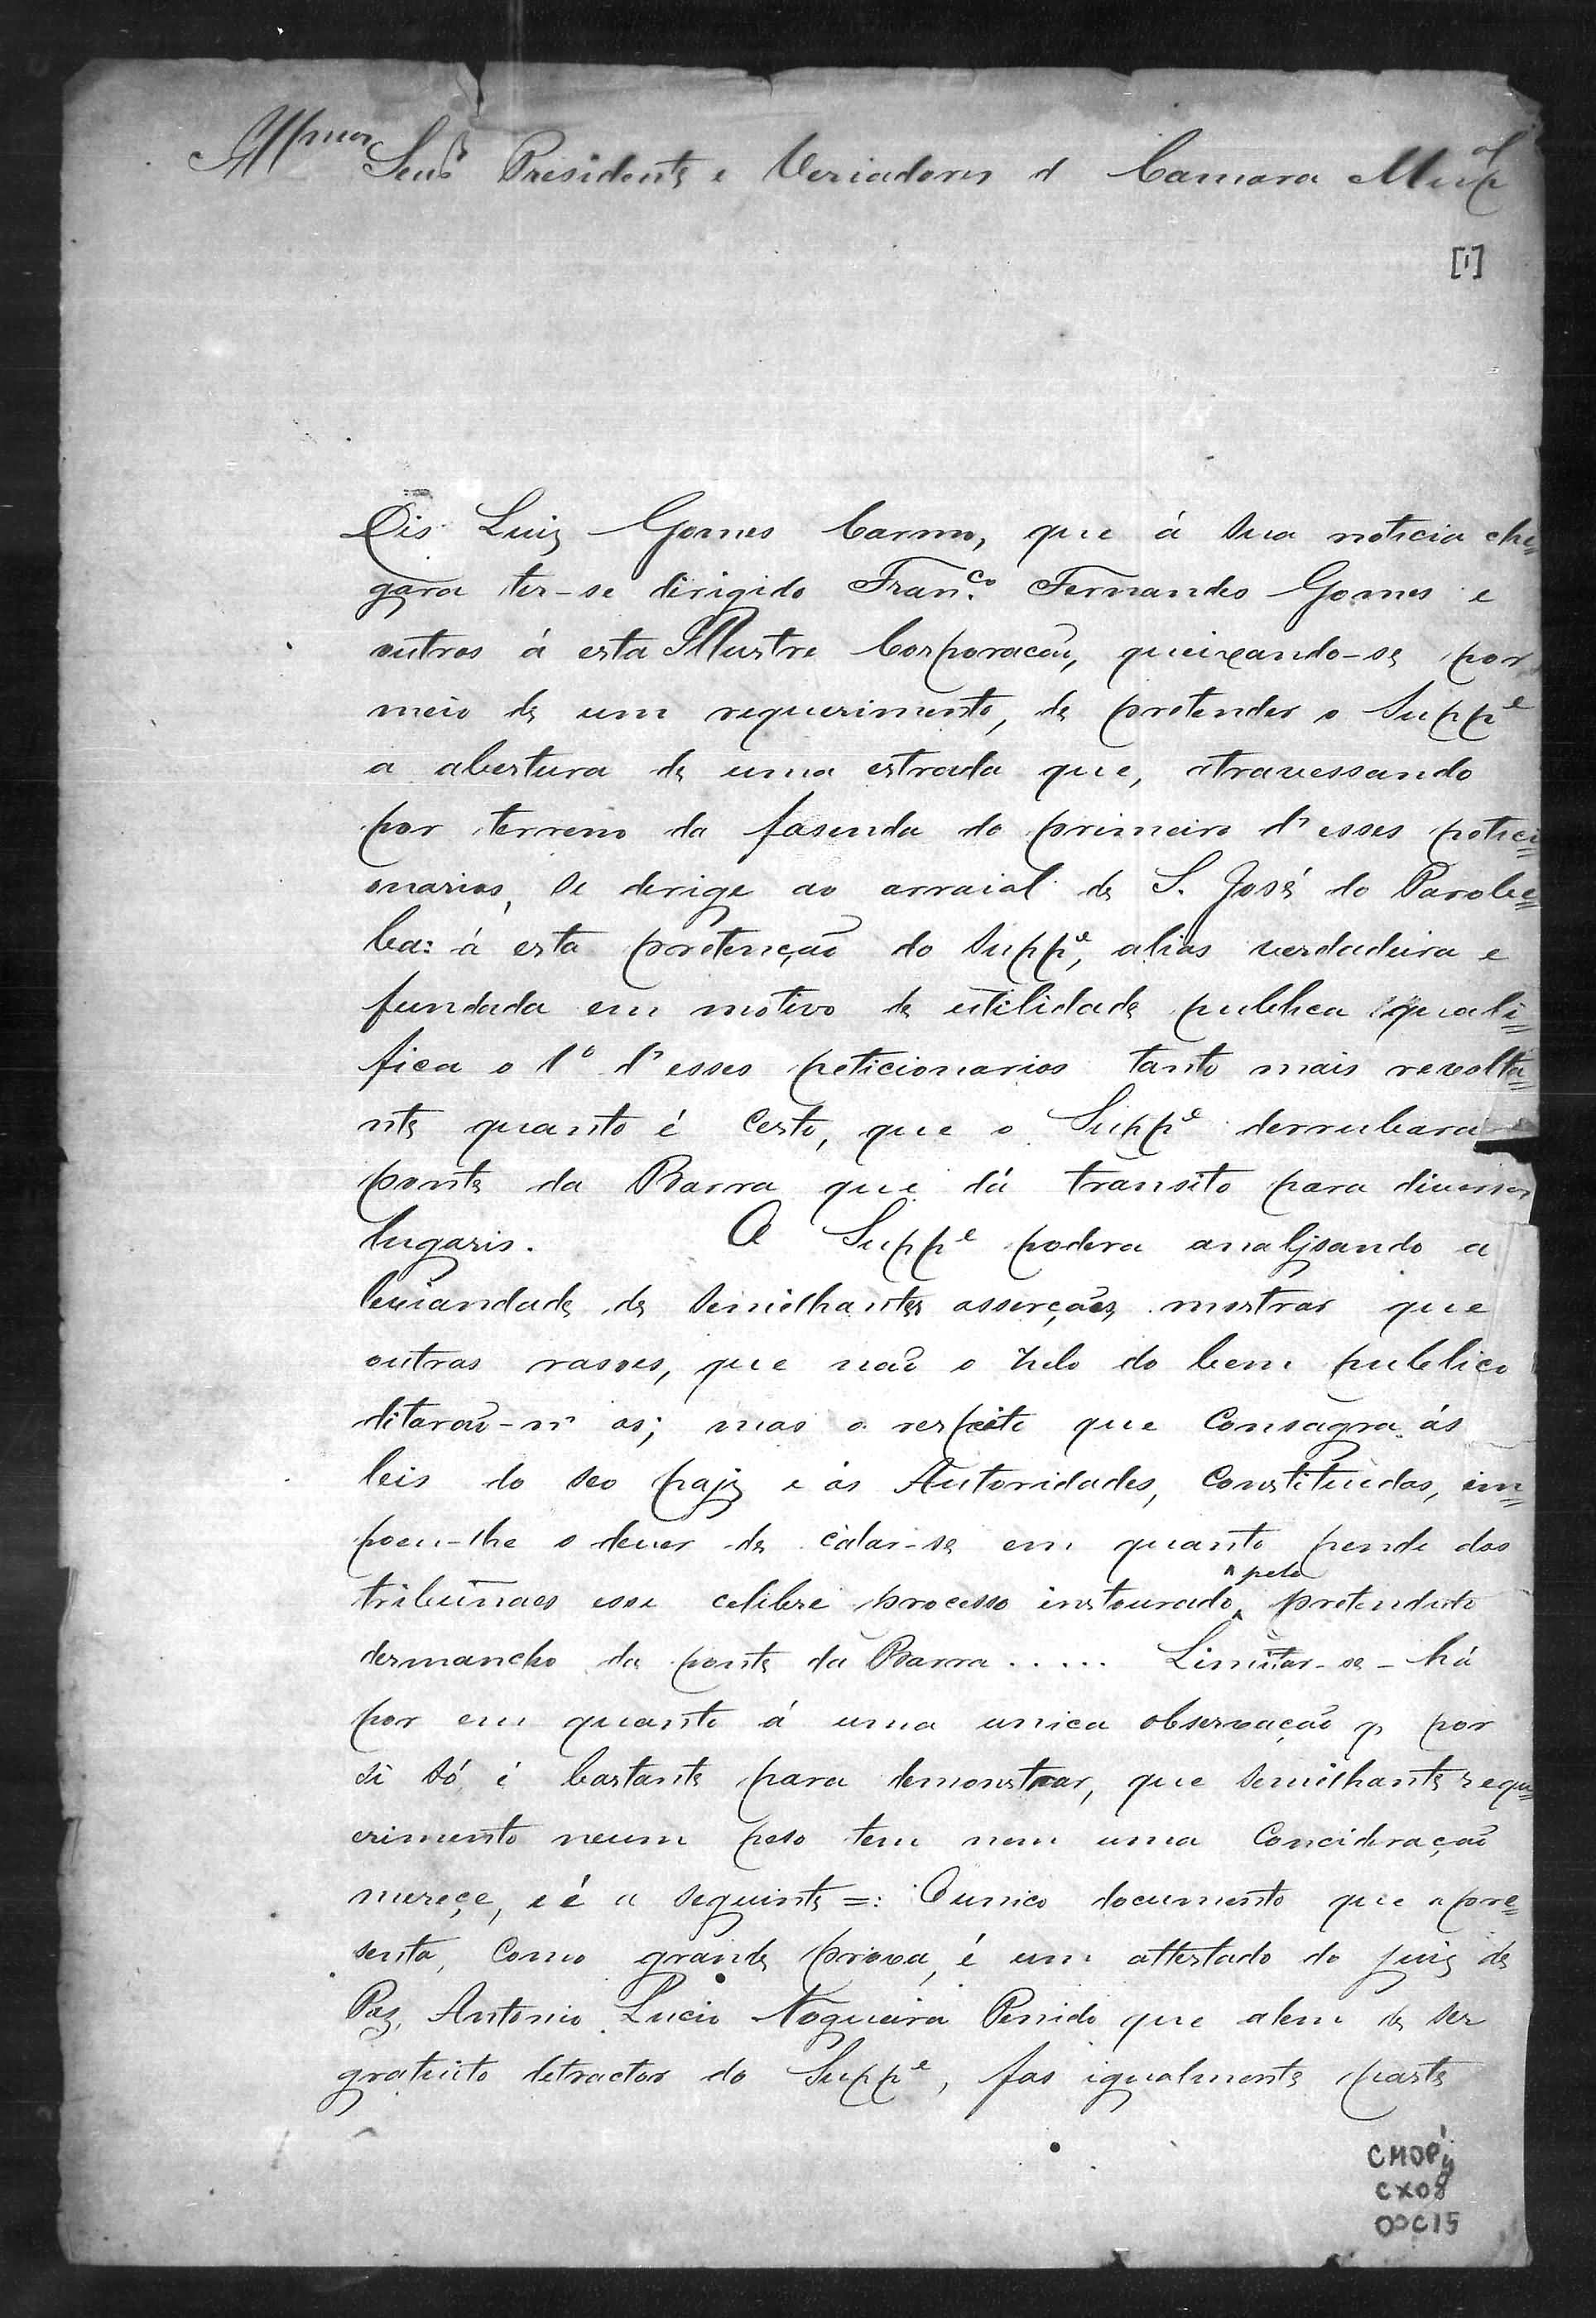 Illmos Senrs Presidente e Veriadores d Camara Mupal
[1]
Dis Luiz Gomes Carmo, que á sua noticia che=
gara ter-se dirigido Fran.co Fernandes Gomes e
outros á esta Illustre Corporacaõ, queixando-se por
meio de um requerimento, de pretender o Suppe
a abertura de uma estrada que, atravessando
por terreno da fasenda do primeiro d'esses petici=
onarios, se derige ao arraial de S. José do Parobe=
ba: á esta pretenção do Suppe, alias verdadeira e
fundada em motivo de utilidade publica quali=
fica o 1o d'esses peticionarios tanto mais revolta=
nte quanto é certo, que o Suppe derrubara
ponte da Barra que dá transito para diversos
lugaris. O Suppe podera analjsando a
leviandade de semilhantes asserções mostrar que
outras rasoes, que naõ o zelo do bem publico
ditaraõ-n'as; mas o respeito que consagra ás
leis do seo pajz e ás Autoridades, constituidas, im=
poem-lhe o dever de calar-se em quanto pende dos
tribunaes esse celibre processo instourado pelo pretendido
desmancho da ponte da Barra..... Limitar-se-há
por em quanto á uma unica observação q por
si só é bastante para demonstrar, que semilhante requ=
erimento neum peso tem nem uma concideração
mereçe, e é a seguinte =: O unico documento que apre=
senta, como grande prova, é um attestado do juiz de
Paz, Antonio Lucio Nogueira Penido que alem de ser
gratuito detractor do Suppe, fas igualmente parte
CMOP
CX08
DOC15